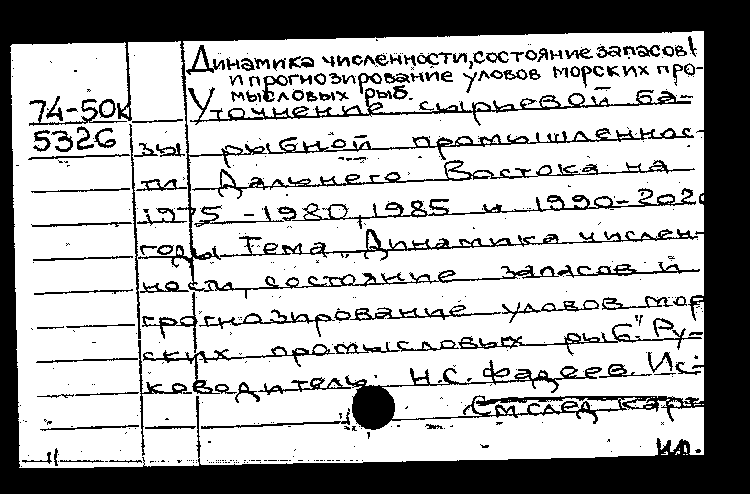 Динамика численности, состояние запасов
и прогнозирование уловов морских про-
мысловых рыб.
74-50к Уточнение сырьевой ба-
5326 зы рыбной промышленнос-
ти Дальнего Востока на
1975-1980, 1985 и 1990-2020
годы Тема „Динамика числен-
ности, состояние запасов и
прогнозирование уловов мор
ских промысловых рыб" Ру-
ководитель: Н.С. Фадеев. Ис-
См след карт